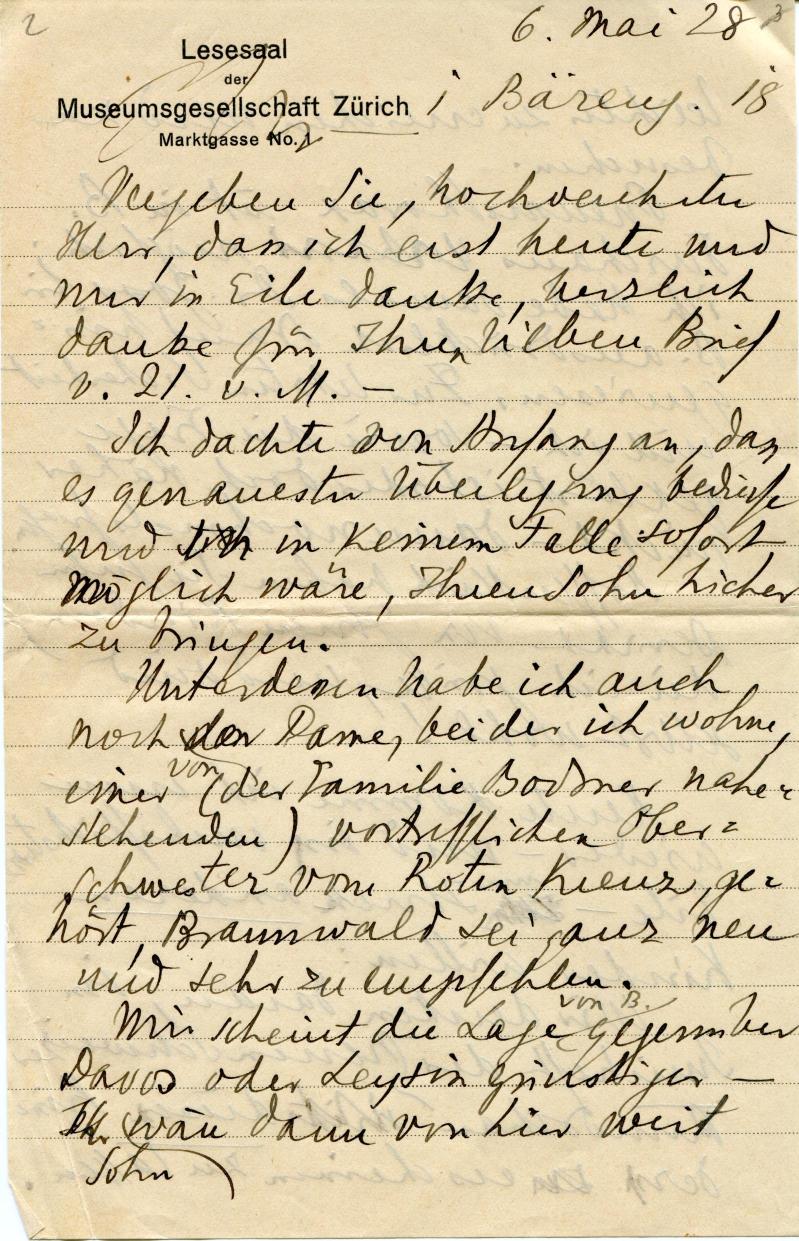 2
6. Mai 28
3
Lesesaal
der
Museumsgesellschaft Zürich
Marktgasse No. 1
i Bäreng. 18
Vergeben Sie, hochverehrter
Herr, dass ich erst heute und
nur in Eile danke, herzlich
danke für Ihren lieben Brief
v. 21. v. M. —
Ich dachte von Anfang an, dass
es genauester Überlegung bedürfe
und in keinem Falle sofort
möglich wäre, Ihren Sohn hieher
zu bringen.
Unterdessen habe ich auch
noch von der Dame, bei der ich wohne,
einer (der Familie Bodmer nahe=
stehenden) vortrefflichen Ober=
schwester vom Roten Kreuz, ge=
hört, Braunwald sei ganz neu
und sehr zu empfehlen.
Mir scheint die Lage von B. gegenüber
Davos oder Leysin günstiger —
Ihr Sohn wäre dann von hier weit